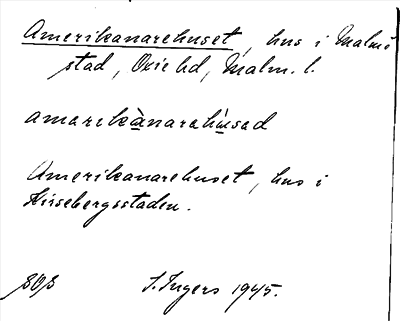 Amerikanarehuset, hus i Malmö
stad, Oxie hd, Malm. l.
amarekànarahùsad
Amerikanarehuset, hus i
Kirsebergsstaden.
SOS I. Ingers 1945.